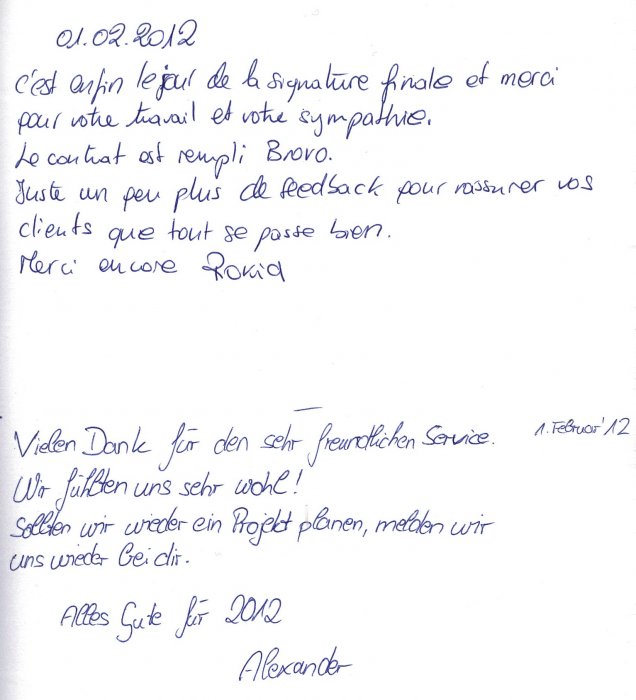 01.02.2012
C'est enfin le jour de la signature finale et merci
pour votre travail et votre sympathie.
Le contrat est rempli Bravo.
Juste un peu plus de feedback pour rassurer vos
clients que tout se passe bien.
Merci encore Rokia
Vielen Dank für den sehr freundlichen Service. 1. Februar '12
Wir fühlten uns sehr wohl!
Sollten wir wieder ein Projekt planen, melden wir
uns wieder bei dir.
Alles Gute für 2012
Alexander